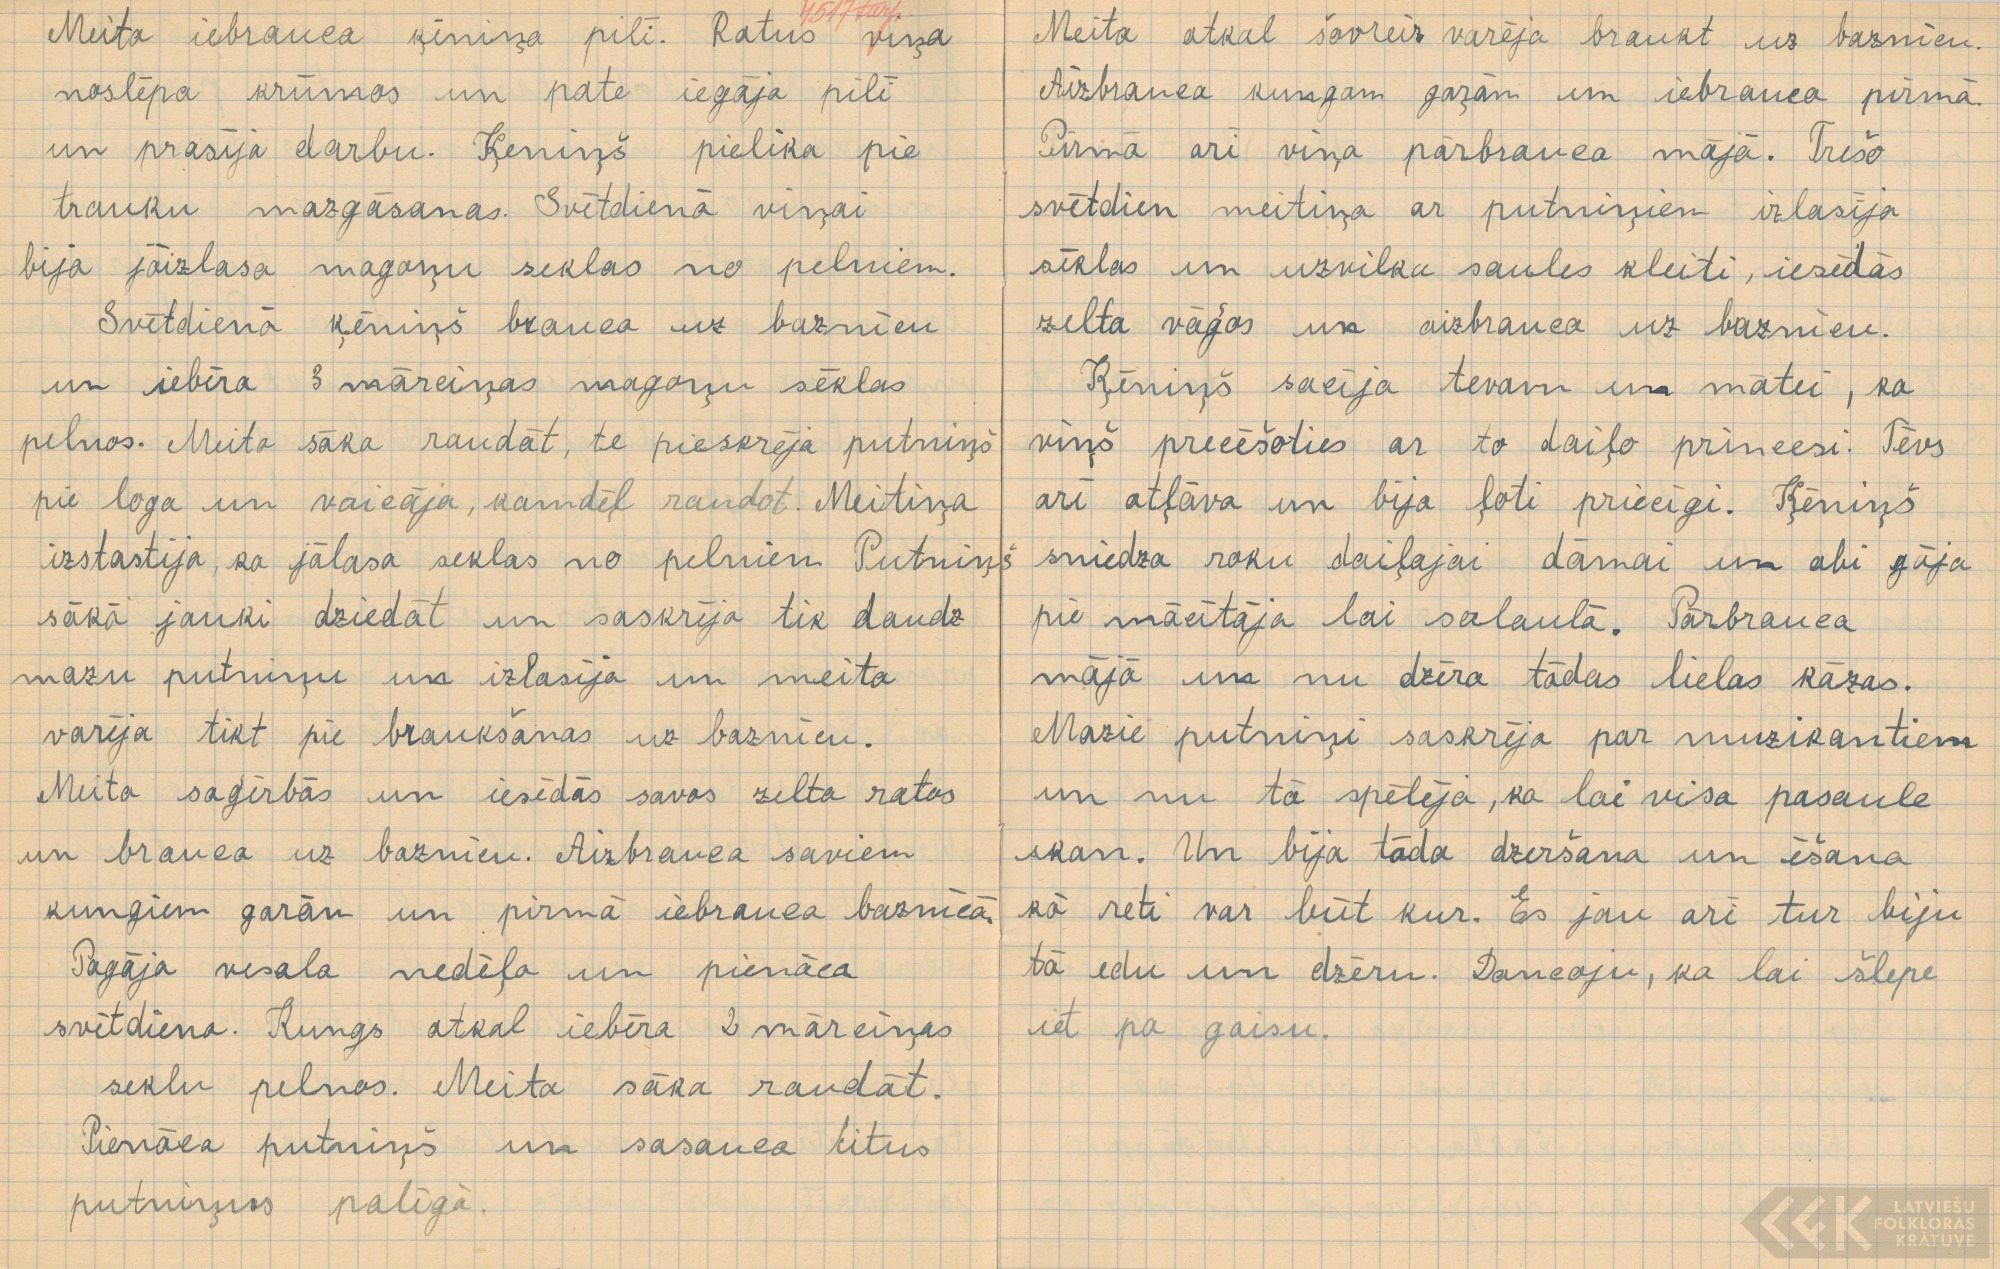 4517 turp.
Meita iebrauca ķēniņa pilī. Ratus viņa
noslēpa krūmos un pate iegāja pilī
un prasīja darbu. Ķeniņš pielika pie
trauku mazgāsanas. Svētdienā viņai
bija jāizlasa magoņu seklas no pelniem.
Svētdienā ķēniņš brauca uz baznīcu
un iebēra 3 mārciņas magoņu sēklas
pelnos. Meita sāka raudāt, te pieskrēja putniņš
pie loga un vaicāja, kamdēļ raudot. Meitiņa
izstastija, ka jālasa seklas no pelnien Putniņš
sākā jauki dziedāt un saskrēja tik daudz
mazu putniņu un izlasīja un meita
varēja tikt pie braukšanas uz baznīcu.
Meita saģērbās un iesēdās savos zelta ratos
un brauca uz baznīcu. Aizbrauca saviem
kungiem garām un pirmā iebrauca baznīcā.
Pagāja vesala nedēļa un pienāca
svētdiena. Kungs atkal iebēra 2 mārciņas
seklu pelnos. Meita sāka raudāt.
Pienāca putniņš un sasauca citus
putniņus palīgā.
Meita atkal šovreiz varēja braukt uz baznīcu.
Aizbrauca kungam gaŗām un iebrauca pirmā.
Pirmā arī viņa pārbrauca mājā. Trešo
svētdien meitiņa ar putniņiem izlasīja
sēklas un uzvilka saules kleiti, iesēdās
zelta vāģos un aizbrauca uz baznīcu.
Ķēniņš sacīja tevam un mātei, ka
viņš precēšoties ar to daiļo princesi. Tēvs
arī atļāva un bija ļoti priecīgi. Ķēniņš
sniedza roku daiļajai dāmai un abi gāja
pie mācītāja lai salaulā. Pārbrauca
mājā un nu dzēra tādas lielas kāzas.
Mazie putniņi saskrēja par muzikantiem
un nu tā spēlēja, ka lai visa pasaule
skan. Un bija tāda dzeršana un ēšana
kā reti var būt kur. Es jau arī tur biju
tā edu un dzēru. Dancoju, ka lai šlepe
iet pa gaisu.
LATVIEŠU
FOLKLORAS
KRĀTUVE